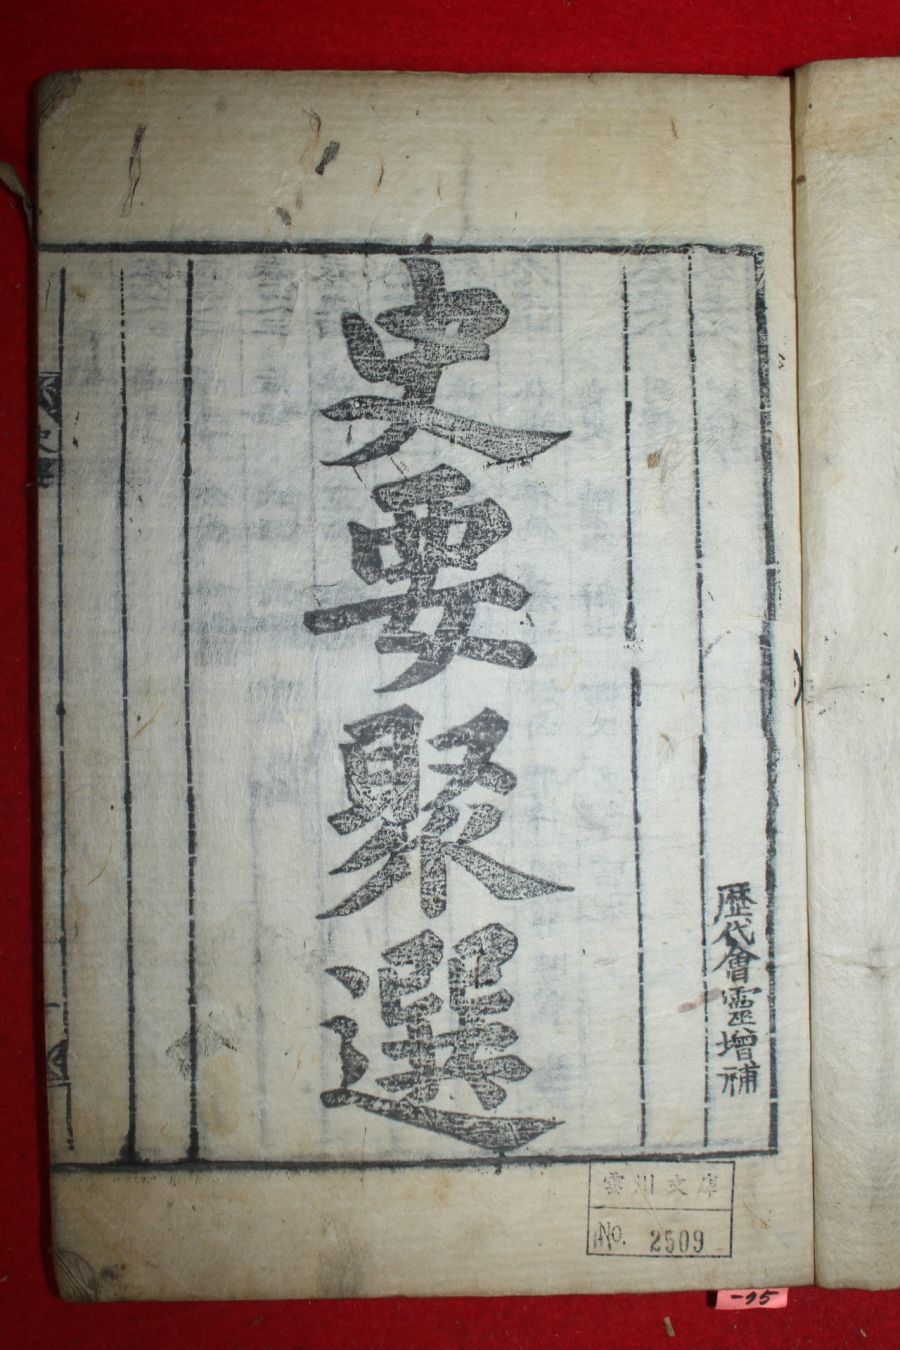 歷代會靈增補
史要聚選
雲川文庫
No. 2509
-95